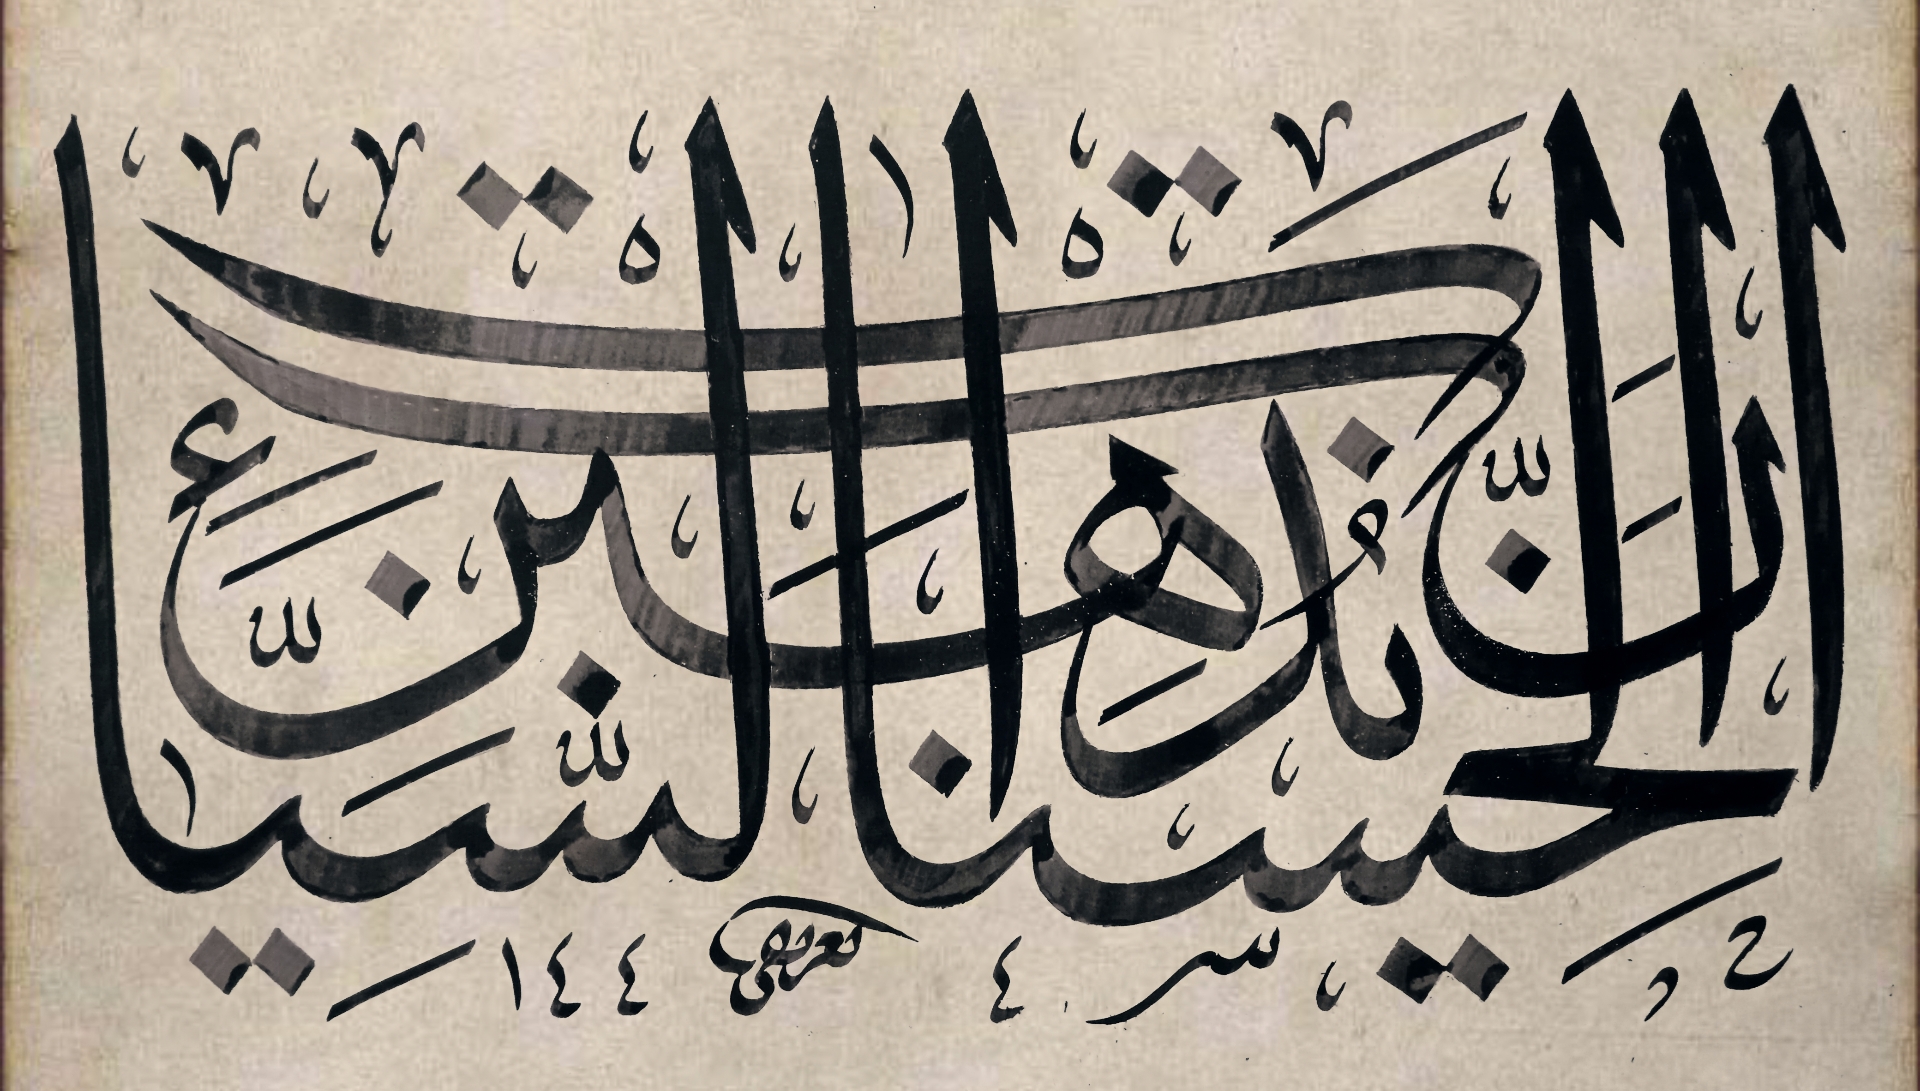 إِنَّ الْحَسَنَاتِ يُذْهِبْنَ السَّيِّئَاتِ
١٤٤